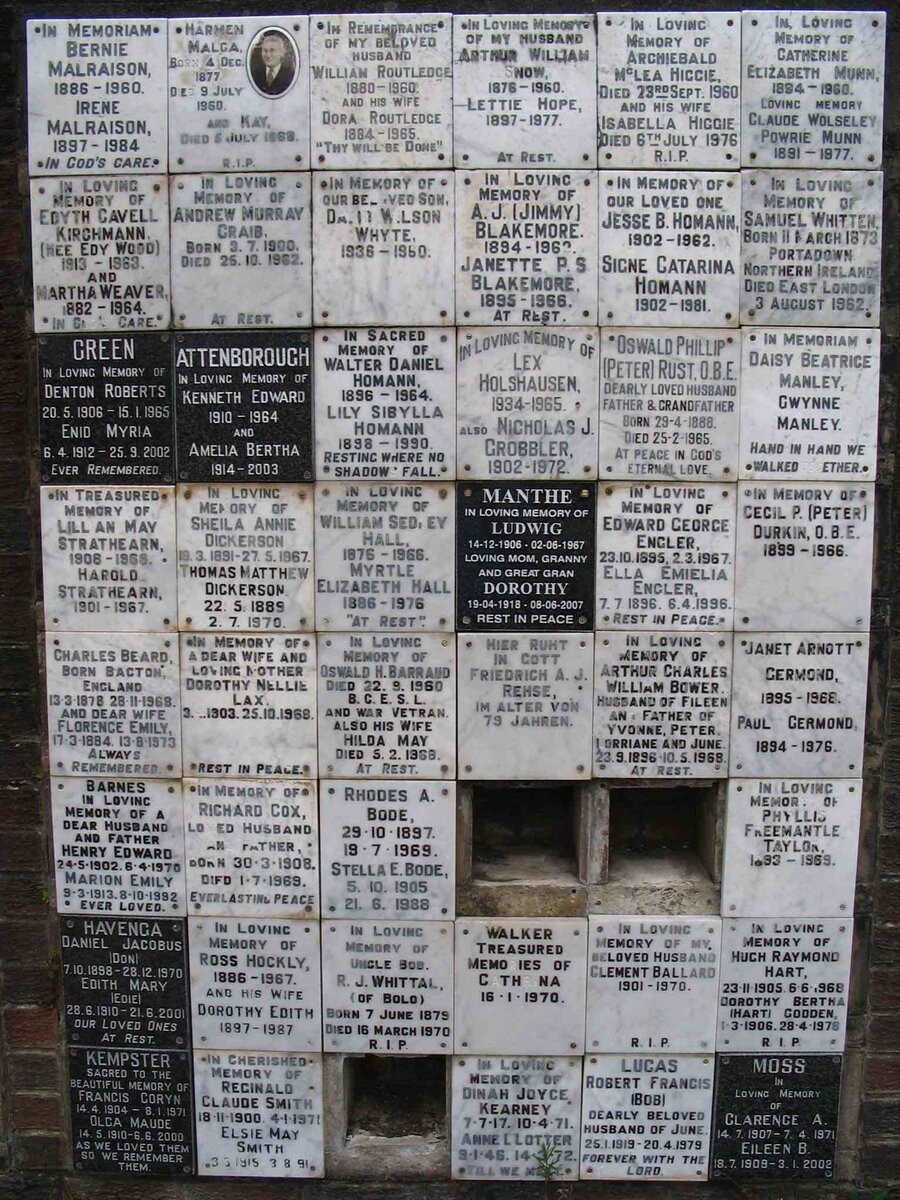 IN MEMORIAM
BERNIE
MALRAISON,
1886-1960.
IRENE
MALRAISON,
1897-1984
IN GOD'S CARE.
HARMEN
MALGA,
BORN 4 DEC.
1877
DIED 9 JULY
1960.
AND KAY,
DIED 5 JULY 1968.
R.I.P.
IN REMEMBRANCE
OF MY BELOVED
HUSBAND
WILLIAM ROUTLEDGE
1880-1960.
AND HIS WIFE
DORA ROUTLEDGE
1884-1965.
"THY WILL BE DONE"
IN LOVING MEMORY
OF MY HUSBAND
ARTHUR WILLIAM
SNOW,
1876-1960.
LETTIE HOPE,
1897-1977.
AT REST.
IN LOVING
MEMORY OF
ARCHIEBALD
MCLEA HIGGIE,
DIED 23RD SEPT. 1960
AND HIS WIFE
ISABELLA HIGGIE
DIED 6TH JULY 1976
R.I.P.
IN LOVING
MEMORY OF
CATHERINE
ELIZABETH MUNN,
1894-1960.
LOVING MEMORY
CLAUDE WOLSELEY
POWRIE MUNN
1891-1977.
IN LOVING
MEMORY OF
EDYTH CAVELL
KIRCHMANN,
(NEE EDY WOOD)
1913-1963.
AND
MARTHA WEAVER,
1882-1964.
IN CARE.
IN LOVING
MEMORY OF
ANDREW MURRAY
CRAIB,
BORN 3.7.1900,
DIED 25.10.1962.
AT REST.
IN MEMORY OF
OUR BELOVED SON,
WILSON
WHYTE,
1936-1960.
IN LOVING
MEMORY OF
A.J. (JIMMY)
BLAKEMORE.
1894-1962.
JANETTE P.S.
BLAKEMORE,
1895-1966.
AT REST.
IN MEMORY OF
OUR LOVED ONE
JESSE B. HOMANN,
1902-1962.
SIGNE CATARINA
HOMANN
1902-1981.
IN LOVING
MEMORY OF
SAMUEL WHITTEN,
BORN 11 MARCH 1873
PORTADOWN
NORTHERN IRELAND,
DIED EAST LONDON
3 AUGUST 1962.
GREEN
IN LOVING MEMORY OF
DENTON ROBERTS
20.5.1906 - 15.1.1965
ENID MYRIA
6.4.1912 - 25.9.2002
EVER REMEMBERED.
ATTENBOROUGH
IN LOVING MEMORY OF
KENNETH EDWARD
1910-1964
AND
AMELIA BERTHA
1914-2003
IN SACRED
MEMORY OF
WALTER DANIEL
HOMANN,
1896-1964.
LILY SIBYLLA
HOMANN
1898-1990.
RESTING WHERE NO
SHADOWS FALL.
IN LOVING MEMORY OF
LEX
HOLSHAUSEN,
1934-1965.
ALSO NICHOLAS J.
GROBBLER,
1902-1972.
OSWALD PHILLIP
(PETER) RUST, O.B.E.
DEARLY LOVED HUSBAND
FATHER & GRANDFATHER
BORN 29-4-1888.
DIED 25-2-1965.
AT PEACE IN GOD'S
ETERNAL LOVE.
IN MEMORIAM
DAISY BEATRICE
MANLEY,
GWYNNE
MANLEY.
HAND IN HAND WE
WALKED
IN TREASURED
MEMORY OF
LILLIAN MAY
STRATHEARN,
1908-1968.
HAROLD
STRATHEARN,
1901-1967.
IN LOVING
MEMORY OF
SHEILA ANNIE
DICKERSON
19.3.1891-27.5.1967.
THOMAS MATTHEW
DICKERSON
22.5.1889
2.7.1970.
IN LOVING
MEMORY OF
WILLIAM SEDLEY
HALL,
1876-1966.
MYRTLE
ELIZABETH HALL
1886-1976
"AT REST".
MANTHE
IN LOVING MEMORY OF
LUDWIG
14-12-1906 - 02-06-1967
LOVING MOM, GRANNY
AND GREAT GRAN
DOROTHY
19-04-1918 - 08-06-2007
REST IN PEACE
IN LOVING
MEMORY OF
EDWARD GEORGE
ENGLER,
23.10.1895, 2.3.1967.
ELLA EMIELIA
ENGLER,
7.7.1896. 6.4.1996.
REST IN PEACE.
IN MEMORY OF
CECIL P. (PETER)
DURKIN, O.B.E.
1899-1966.
CHARLES BEARD,
BORN BACTON,
ENGLAND
13-3-1878 28-11-1968.
AND DEAR WIFE
FLORENCE EMILY,
17-3-1884. 13-8-1973
ALWAYS
REMEMBERED.
IN MEMORY OF
A DEAR WIFE AND
LOVING MOTHER
DOROTHY NELLIE
LAX.
1903. 25.10.1968.
REST IN PEACE.
IN LOVING
MEMORY OF
OSWALD H. BARRAUD
DIED 22.9.1960
B.C.E.S.L.
AND WAR VETRAN.
ALSO HIS WIFE
HILDA MAY
DIED 5.2.1968.
AT REST.
HIER RUHT
IN GOTT
FRIEDRICH A.J.
REHSE,
IM ALTER VON
79 JAHREN.
IN LOVING
MEMORY OF
ARTHUR CHARLES
WILLIAM BOWER.
HUSBAND OF EILEEN
AND FATHER OF
YVONNE, PETER.
LORRIANE AND JUNE.
23.9.1896-10.5.1968.
AT REST.
JANET ARNOTT
GERMOND,
1895-1968.
PAUL GERMOND,
1894-1976.
BARNES
IN LOVING
MEMORY OF A
DEAR HUSBAND
AND FATHER
HENRY EDWARD
24-5-1902. 6-4-1970
MARION EMILY
9-3-1913. 8-10-1992
EVER LOVED.
IN MEMORY OF
RICHARD COX,
LOVED HUSBAND
AND FATHER,
BORN 30-3-1908.
DIED 1-7-1969.
EVERLASTING PEACE
RHODES A.
BODE,
29-10-1897.
19-7-1969.
STELLA E. BODE,
5.10.1905
21.6.1988
IN LOVING
MEMORY OF
PHYLLIS
FREEMANTLE
TAYLOR,
1893-1969.
HAVENGA
DANIEL JACOBUS
(DON)
7.10.1898 - 28.12.1970
EDITH MARY
(EDIE)
28.6.1910 - 21.6.2001
OUR LOVED ONES
AT REST.
IN LOVING
MEMORY OF
ROSS HOCKLY,
1886-1967.
AND HIS WIFE
DOROTHY EDITH
1897-1987
IN LOVING
MEMORY OF
UNCLE BOB.
R.J. WHITTAL,
(OF BOLO)
BORN 7 JUNE 1879
DIED 16 MARCH 1970
R.I.P.
WALKER
TREASURED
MEMORIES OF
16-1-1970.
IN LOVING
MEMORY OF MY
BELOVED HUSBAND
CLEMENT BALLARD
1901-1970.
R.I.P.
IN LOVING
MEMORY OF
HUGH RAYMOND
HART,
23-11-1905. 6-6-1968
DOROTHY BERTHA
(HART) GODDEN,
1-3-1906. 28-4-1978
R.I.P.
KEMPSTER
SACRED TO THE
BEAUTIFUL MEMORY OF
FRANCIS CORYN
14.4.1904 - 8.1.1971
OLGA MAUDE
14.5.1910-6.6.2000
AS WE LOVED THEM
SO WE REMEMBER
THEM.
IN CHERISHED
MEMORY OF
REGINALD
CLAUDE SMITH
18-11-1900. 4-1-1971
ELSIE MAY
SMITH
1915. 3.8.91
IN LOVING
MEMORY OF
DINAH JOYCE
KEARNEY
7-7-17. 10-4-71.
ANNE L LOTTER
9-1-46.
TILL WE
LUCAS
ROBERT FRANCIS
(BOB)
DEARLY BELOVED
HUSBAND OF JUNE.
25.1.1919-20.4.1979
FOREVER WITH THE
LORD.
MOSS
IN
LOVING MEMORY
OF
CLARENCE A.
14.7.1907 - 7.4.1971
EILEEN B.
18.7.1909 - 3.1.2002